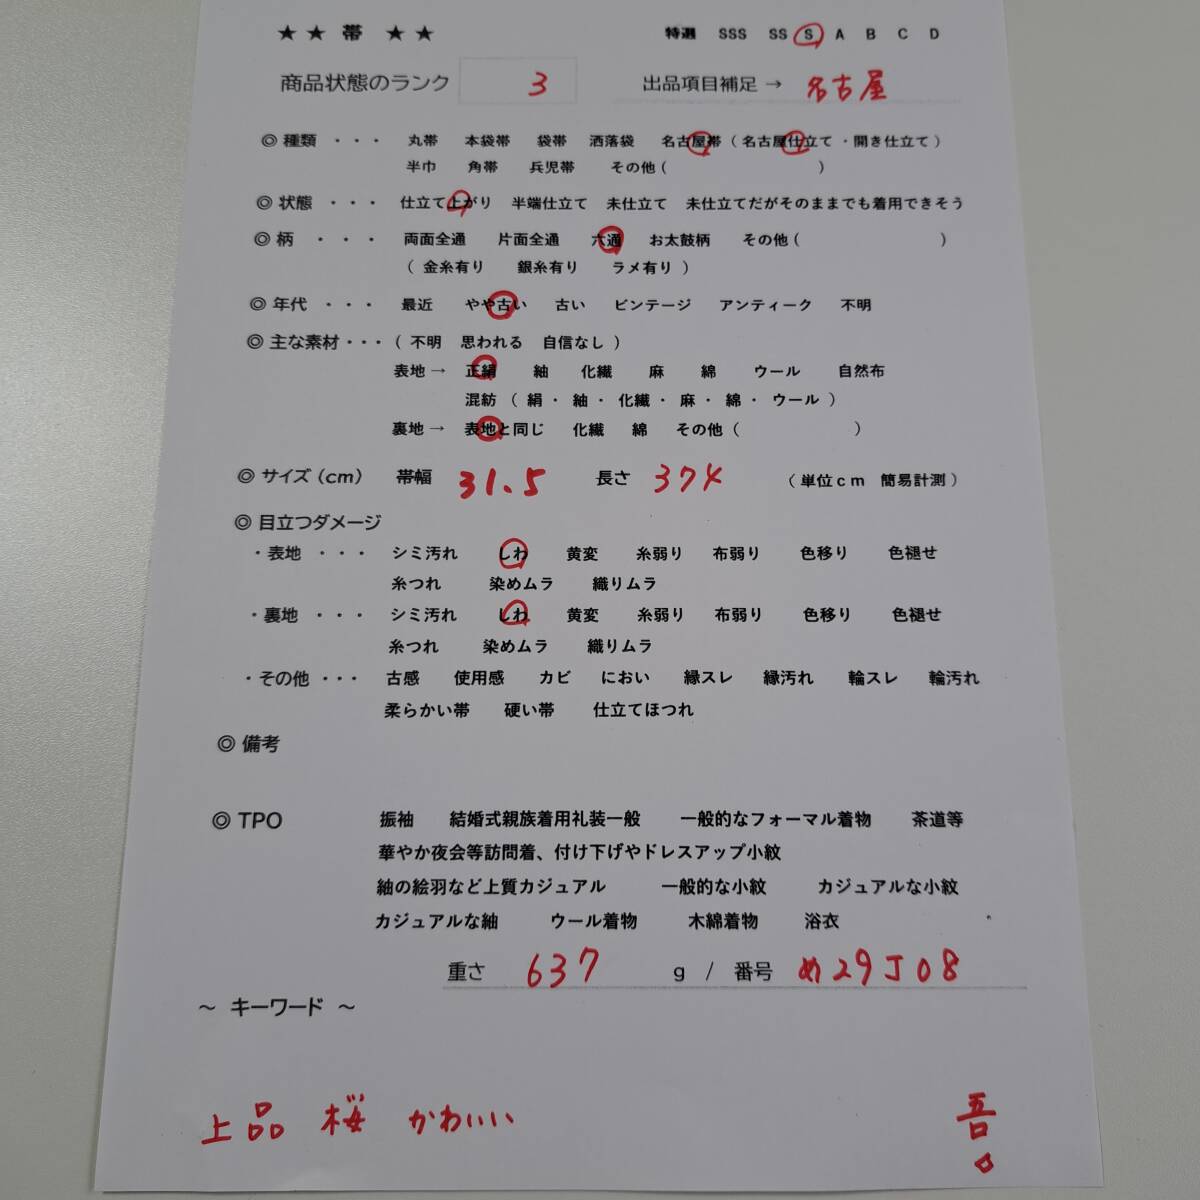 ★ ★ 帯 ★ ★ 特選 SSS SS S A B C D
商品状態のランク 3 出品項目補足 → 名古屋
◎ 種類 ・・・ 丸帯 本袋帯 袋帯 洒落袋 名古屋帯 ( 名古屋仕立て ・開き仕立て )
半巾 角帯 兵児帯 その他 ( )
◎ 状態 ・・・ 仕立て上がり 半端仕立て 未仕立て 未仕立てだがそのままでも着用できそう
◎ 柄 ・・・ 両面全通 片面全通 六通 お太鼓柄 その他 ( )
( 金糸有り 銀糸有り ラメ有り )
◎ 年代 ・・・ 最近 やや古い 古い ビンテージ アンティーク 不明
◎ 主な素材・・・ ( 不明 思われる 自信なし )
表地 → 正絹 紬 化繊 麻 綿 ウール 自然布
混紡 ( 絹・ 紬・ 化繊・ 麻・ 綿・ ウール )
裏地 → 表地と同じ 化繊 綿 その他 ( )
◎ サイズ (cm) 帯幅 31.5 長さ 374 ( 単位cm 簡易計測 )
◎ 目立つダメージ
・表地 ・・・ シミ汚れ しわ 黄変 糸弱り 布弱り 色移り 色褪せ
糸つれ 染めムラ 織りムラ
・裏地 ・・・ シミ汚れ しわ 黄変 糸弱り 布弱り 色移り 色褪せ
糸つれ 染めムラ 織りムラ
・その他 ・・・ 古感 使用感 カビ におい 縁スレ 縁汚れ 輪スレ 輪汚れ
柔らかい帯 硬い帯 仕立てほつれ
◎ 備考
◎ TPO 振袖 結婚式親族着用礼装一般 一般的なフォーマル着物 茶道等
華やか夜会等訪問着、付け下げやドレスアップ小紋
紬の絵羽など上質カジュアル 一般的な小紋 カジュアルな小紋
カジュアルな紬 ウール着物 木綿着物 浴衣
重さ 637 g / 番号 め29J08
～ キーワード ～
上品 桜 かわいい 吾